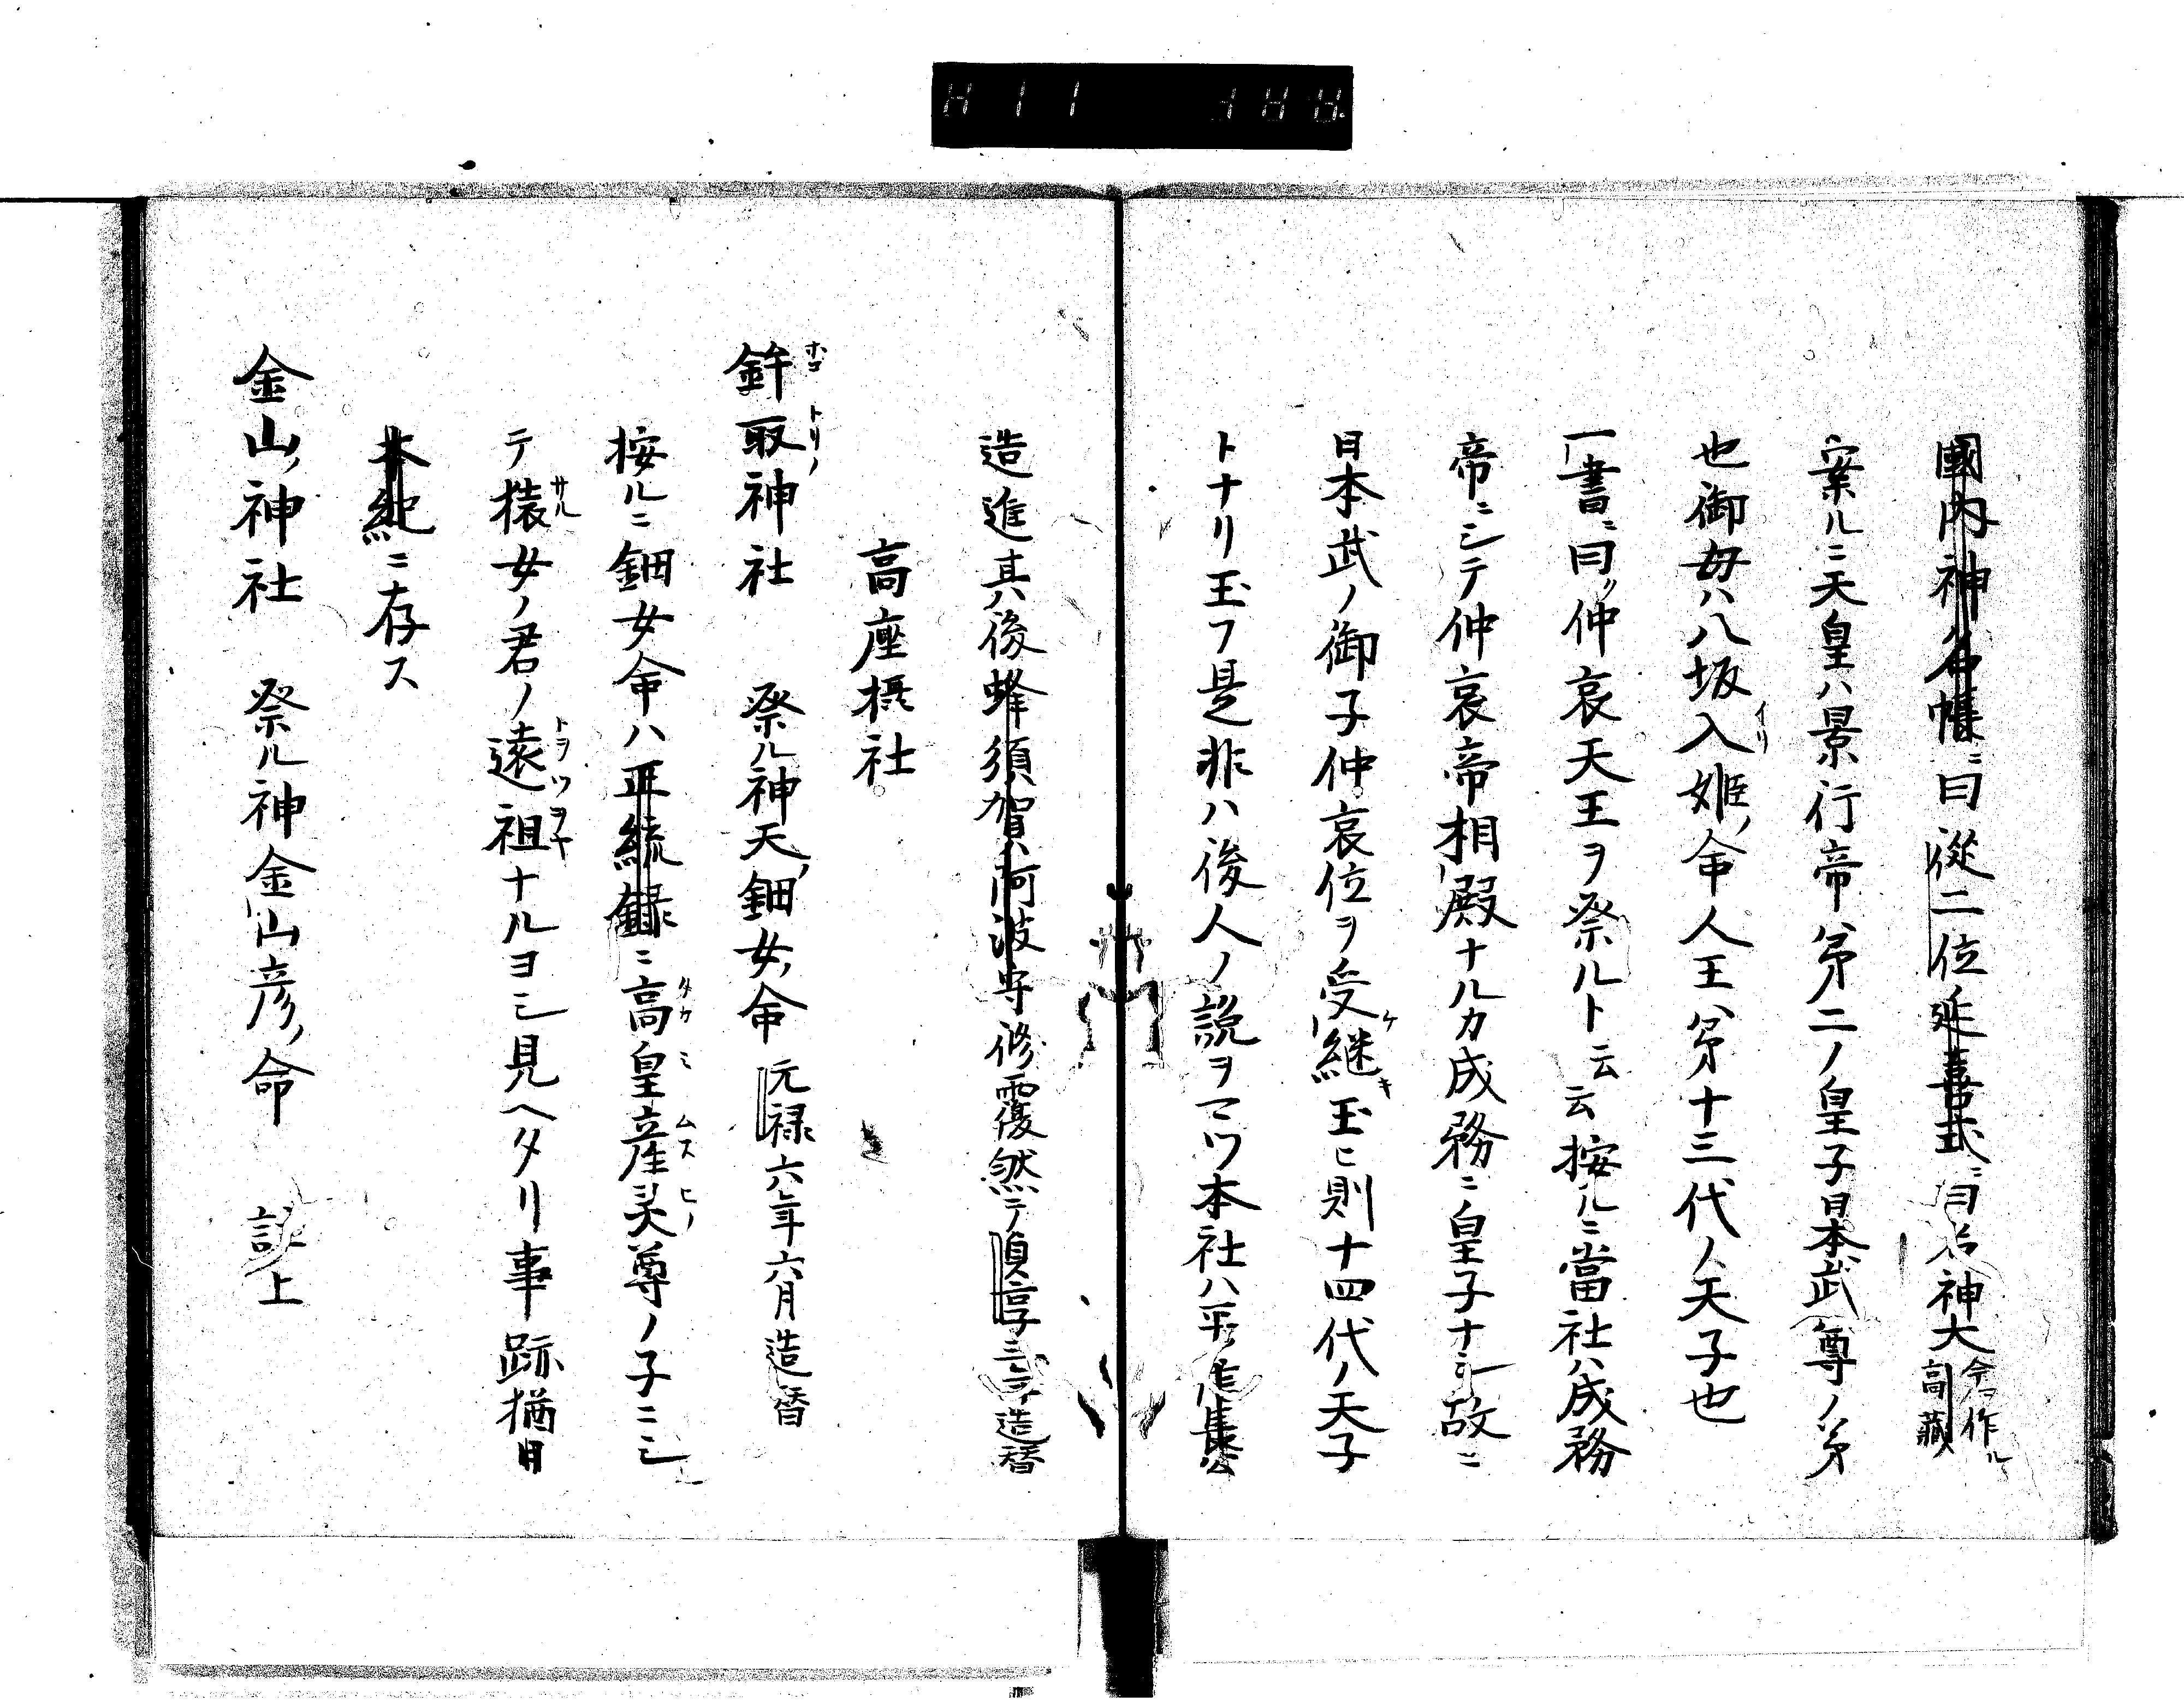 國内神名帳ニ曰從二位延喜式ニ曰名神大今ヲ作ル高藏
案ルニ天皇ハ景行帝ノ第二ノ皇子日本武尊ノ第
也御母ハ八坂入姫ノ命人王ノ第十三代ノ天子也
一書ニ曰ク仲哀天王ヲ祭ルト云云按ルニ當社ハ成務
帝ニシテ仲哀帝相殿ナルカ成務ニ皇子ナシ故ニ
日本武ノ御子仲哀位ヲ受ケ継キ玉ヒ則十四代ノ天子
トナリ玉フ是非ハ後人ノ説ヲマツ本社ハ平ノ
造進其ハ後蜂須賀ハ阿波守修覆然テ貞享三ニ造替
高座摂社
鉾取神社 祭ル神天ノ鈿女ノ命 元禄六年六月造替
按ルニ鈿女命ハ正統録ニ高皇産灵尊ノ子ニシ
テ猿女ノ君ノ遠祖ナルヨシ見ヘタリ事跡猶日
本紀ニ存ス
金山ノ神社 祭ル神金山彦ノ命 上